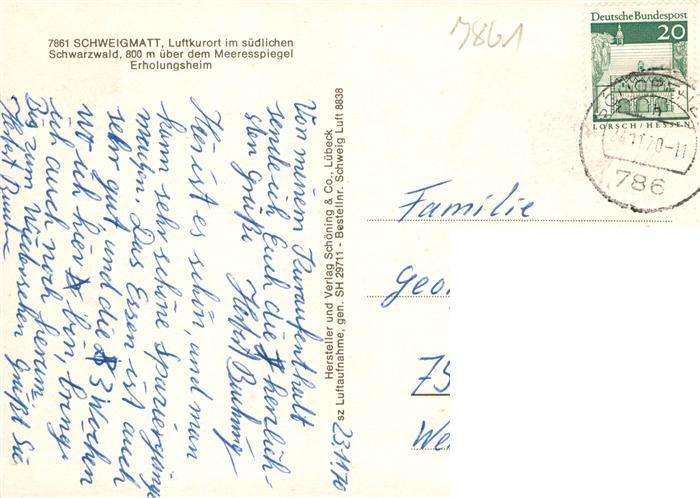 7861 SCHWEIGMATT, Luftkurort im südlichen
Schwarzwald, 800 m über dem Meeresspiegel
Erholungsheim
7861
Deutsche Bundespost
20
LORSCH/HESSEN
70-11
786
23.11.70
Von meinem Kuraufenthalt
sende ich Euch die herzlich-
sten Grüße
Hier ist es schön, und man
kann sehr schöne Spaziergänge
machen. Das Essen ist auch
sehr gut, und die 3 Wochen
wo ich hier bin, bring
ich auch noch herum.
Bis zum Wiedersehen grüßt Sie
Hersteller und Verlag Schöning & Co., Lübeck
sz Luftaufnahme, gen. SH 29711 - Bestellnr. Schweig Luft 8838
Familie
Geor
75
We